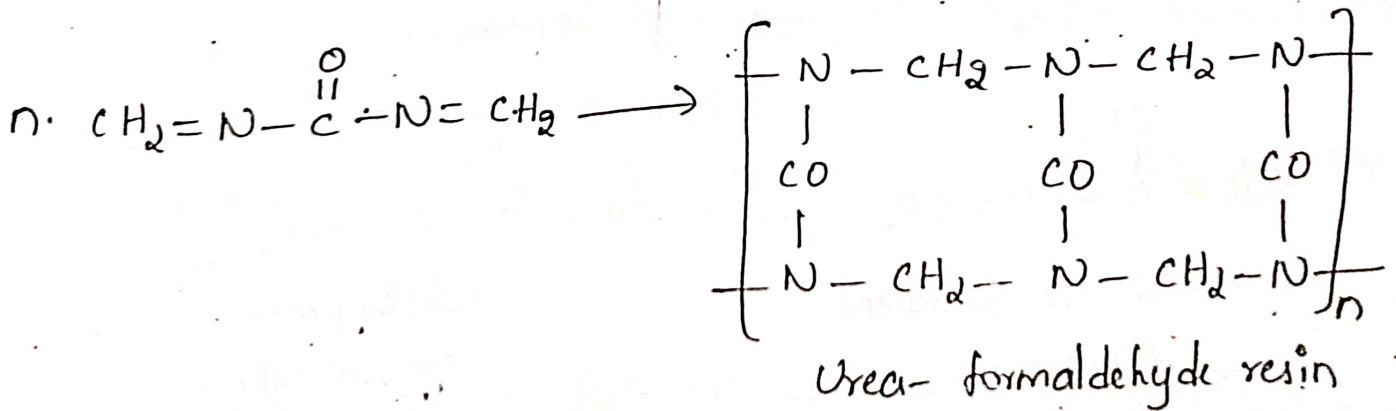 O
||
n. CH₂=N–C–N=CH₂ ⟶ [–N–CH₂–N–CH₂–N–
| | |
CO CO CO
| | |
–N–CH₂–N–CH₂–N–]n
Urea- formaldehyde resin